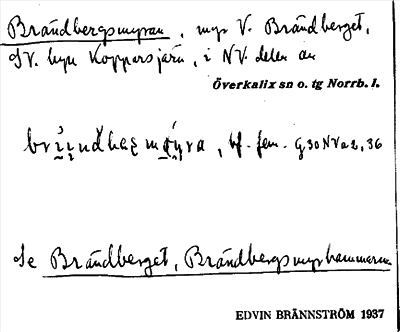 Brändbergsmyran, myr V. Brändberget,
SV. byn Kopparsjärn, i NV. delen av
Överkalix sn o. tg Norrb. l.
bf. fem. G30NVa2,36
Se Brändberget, Brändbergsmyrhammaren
EDVIN BRÄNNSTRÖM 1937